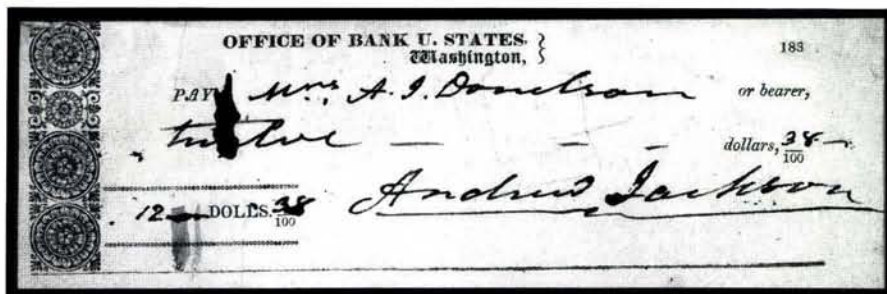 OFFICE OF BANK U. STATES.
Washington, 183
PAY Mrs A. J. Donelson or bearer,
twelve — — — dollars, 38/100
12 DOLLS. 38/100 Andrew Jackson